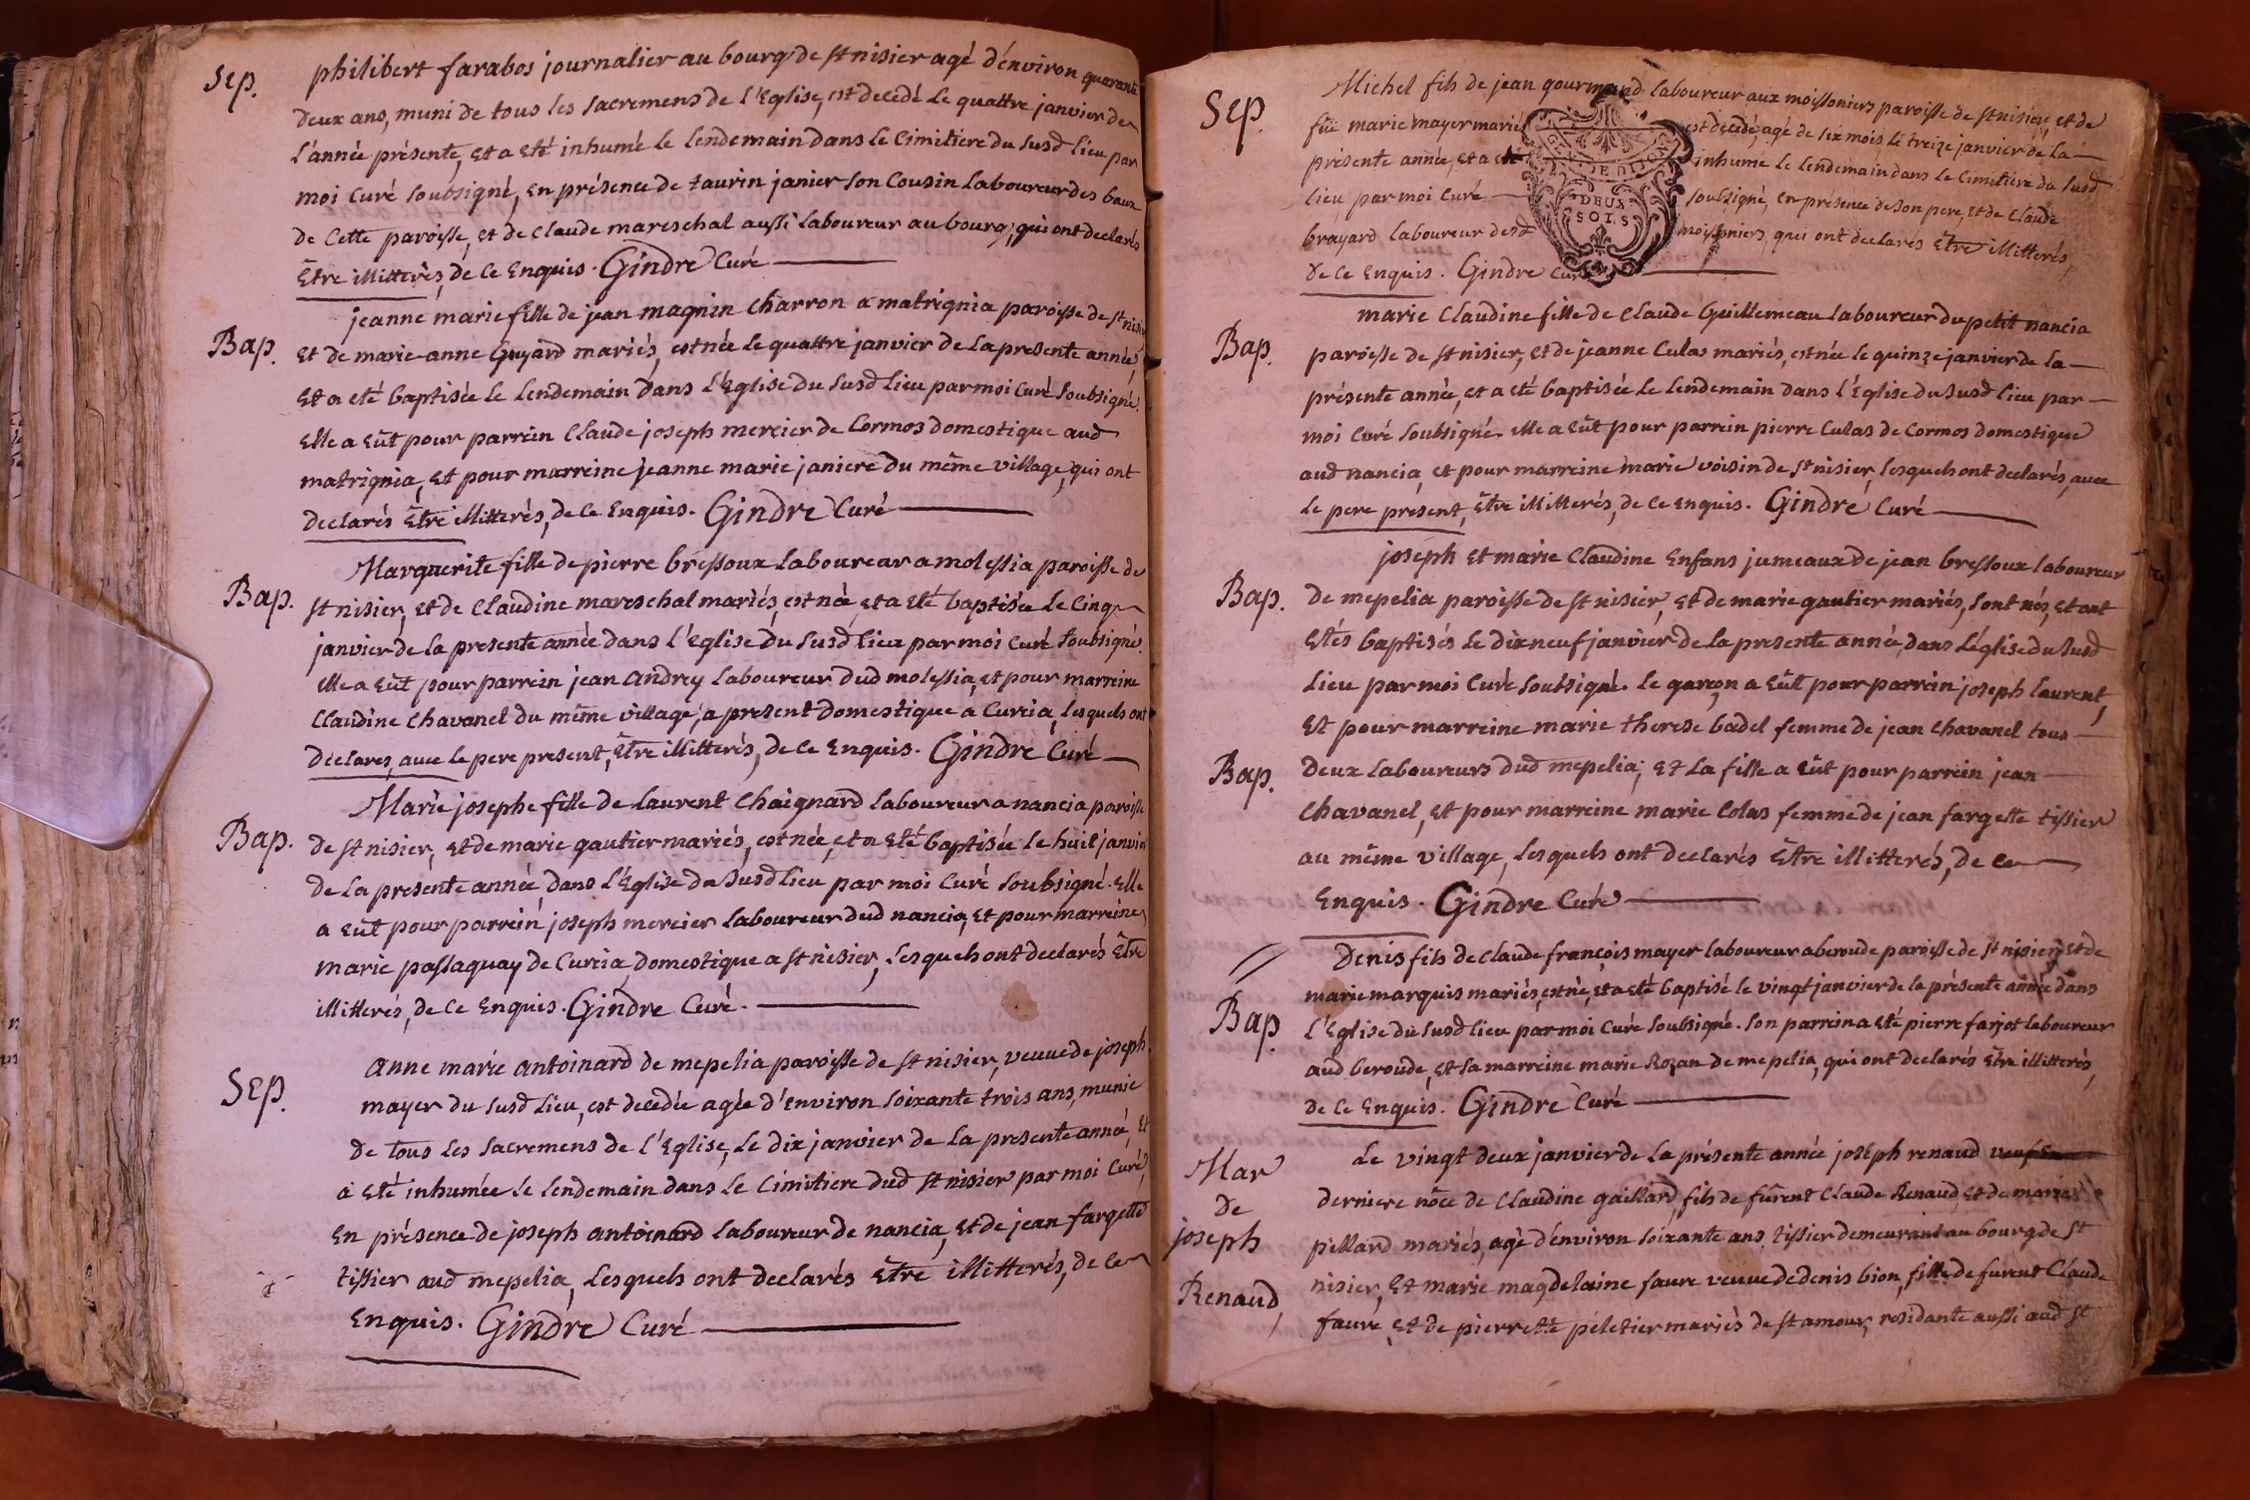 Sep.
philibert farabos journalier au bourg de st nisier agé d'énviron quarante
deux ans, muni de tous les sacremens de l'Eglise, est decedé le quattre janvier de
l'année présente, et a eté inhumé le lendemain dans le Cimitiere du susd lieu par
moi Curé soubsigné, en présence de taurin janier son Cousin laboureur des baux
de Cette paroisse, et de Claude mareschal aussi laboureur au bourg, qui ont declarés
Etre illitterés, de Ce Enquis. Gindre Curé
Bap.
jeanne marie fille de jean magnin Charron a matrignia paroisse de st nisier
Et de marie anne Guyard mariés, est née le quattre janvier de la presente année,
Et a eté baptisée le lendemain dans l'Eglise du susd lieu par moi Curé Soubsigné.
Elle a Eût pour parrein Claude joseph mercier de Cormos domestique aud
matrignia, et pour marreine jeanne marie janiere du même village, qui ont
declarés Etre illitterés, de Ce Enquis. Gindre Curé
Bap.
Marguerite fille de pierre bressoux laboureur a molessia paroisse de
st nisier, et de Claudine mareschal mariés, est née, et a eté baptisée le Cinq
janvier de la presente année dans l'Eglise du susd lieu par moi Curé soubsigné.
elle a eût pour parrein jean andrey laboureur dud moléssia, et pour marreine
Claudine Chavanel du même village, a present domestique a Curcia, lesquels ont
déclarés, avec le pere present, Etre illitterés, de Ce Enquis. Gindre Curé
Bap.
Marie josephe fille de laurent Chaignard laboureur a nancia paroisse
de st nisier, et de marie gautier mariés, est née, et a Eté baptisée le huit janvier
de la présente année dans l'Eglise du susd lieu par moi Curé soubsigné. Elle
a eût pour parrein joseph mercier laboureur dud nancia, et pour marreine
marie passaquay de Curcia domestique a st nisier, lesquels ont declarés Etre
illitterés, de Ce Enquis. Gindre Curé.
Sep.
anne marie antoinard de mepelia paroisse de st nisier, veuve de joseph
mayer du susd lieu, est decedée agée d'environ soixante trois ans, munie
de tous les sacremens de l'Eglise, le dix janvier de la presente année, Et
a eté inhumée le lendemain dans le Cimitiere dud st nisier par moi Curé,
En présence de joseph antoinard laboureur de nancia, et de jean fargette
tissier aud mepelia, lesquels ont declarés Etre illitterés, de Ce
Enquis. Gindre Curé
Sep.
Michel fils de jean gourmand laboureur aux moissoniers paroisse de st nisier, et de
füe marie mayer mariés est décedé, agé de six mois le treize janvier de la
présente année, et a eté inhumé le lendemain dans le Cimitiere du susd
lieu par moi Curé soubsigné, en présence de son pere, et de Claude
brayard laboureur desd moissoniers, qui ont declarés Etre illitterés,
de Ce Enquis. Gindre Curé.
DEUX
SOLS
Bap.
marie Claudine fille de Claude Guillemeau laboureur du petit nancia
paroisse de st nisier, et de jeanne Culas mariés, est née le quinze janvier de la
présente année, et a eté baptisée le lendemain dans l'église du susd lieu par
moi Curé soubsigné. elle a eût pour parrein pierre Culas de Cormos domestique
aud nancia, et pour marreine marie voisin de st nisier, lesquels ont declarés, avec
le pere present, Etre illitterés, de Ce Enquis. Gindre Curé
Bap.
joseph et marie Claudine Enfans jumeaux de jean bressoux laboureur
de mepelia paroisse de st nisier, et de marie gautier mariés, sont nés, et ont
Etés baptisés le dix neuf janvier de la presente année, dans l'église du susd
lieu par moi Curé soubsigné. le garçon a eût pour parrein joseph laurent,
Et pour marreine marie therese badel femme de jean Chavanel tous
Bap.
deux laboureurs dud mepelia; et la fille a eût pour parrein jean
Chavanel, et pour marreine marie Colas femme de jean fargette tissier
au même village, lesquels ont declarés Etre illitterés, de Ce
Enquis. Gindre Curé
Bap.
Denis fils de Claude françois mayer laboureur a beroude paroisse de st nisier, et de
marie marquis mariés, est né, et a eté baptisé le vingt janvier de la présente année dans
l'Eglise du susd lieu par moi Curé soubsigné. son parrein a eté pierre farjot laboureur
aud beroude, et sa marreine marie Rozan de mepelia, qui ont declarés Etre illitterés,
de Ce Enquis. Gindre Curé
Mar
de
joseph
Renaud,
Le vingt deux janvier de la présente année joseph renaud veuf en
derniere nôce de Claudine gaillard, fils de fûrent Claude Renaud, et de marie
pillard mariés, agé d'énviron soixante ans, tissier demeurant au bourg de st
nisier, Et marie magdelaine faure veuve de denis bion, fille de furent Claude
faure, et de pierrette péletier mariés de st amour, residante aussi aud st